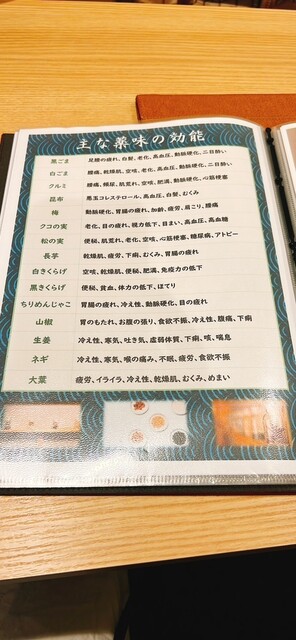 主な薬味の効能
黒ごま 足腰の疲れ、白髪、老化、高血圧、動脈硬化、二日酔い
白ごま 腰痛、乾燥肌、空咳、高血圧、動脈硬化、二日酔い
クルミ 腰痛、頻尿、肌荒れ、空咳、肥満、動脈硬化、心筋梗塞
昆布 悪玉コレステロール、高血圧、白髪、むくみ
梅 動脈硬化、胃腸の疲れ、加齢、疲労、肩こり、腰痛
クコの実 老化、目の疲れ、視力低下、目まい、高血圧、高血糖
松の実 便秘、肌荒れ、老化、空咳、心筋梗塞、糖尿病、アトピー
長芋 乾燥肌、疲労、下痢、むくみ、胃腸の疲れ
白きくらげ 空咳、乾燥肌、便秘、肥満、免疫力の低下
黒きくらげ 便秘、貧血、体力の低下、ほてり
ちりめんじゃこ 胃腸の疲れ、冷え性、動脈硬化、目の疲れ
山椒 胃のもたれ、お腹の張り、食欲不振、冷え性、腹痛、下痢
生姜 冷え性、寒気、吐き気、虚弱体質、下痢、咳、喘息
ネギ 冷え性、寒気、喉の痛み、不眠、疲労、食欲不振
大葉 疲労、イライラ、冷え性、乾燥肌、むくみ、めまい